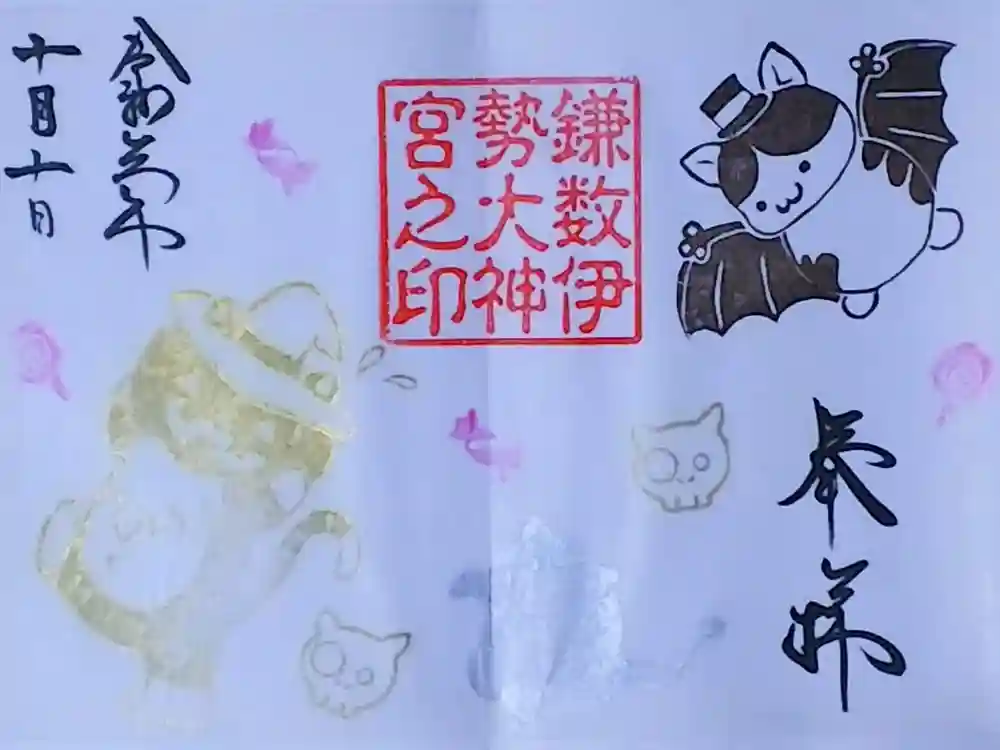 奉拝
鎌数伊
勢大神
宮之印
令和 年
十月十日